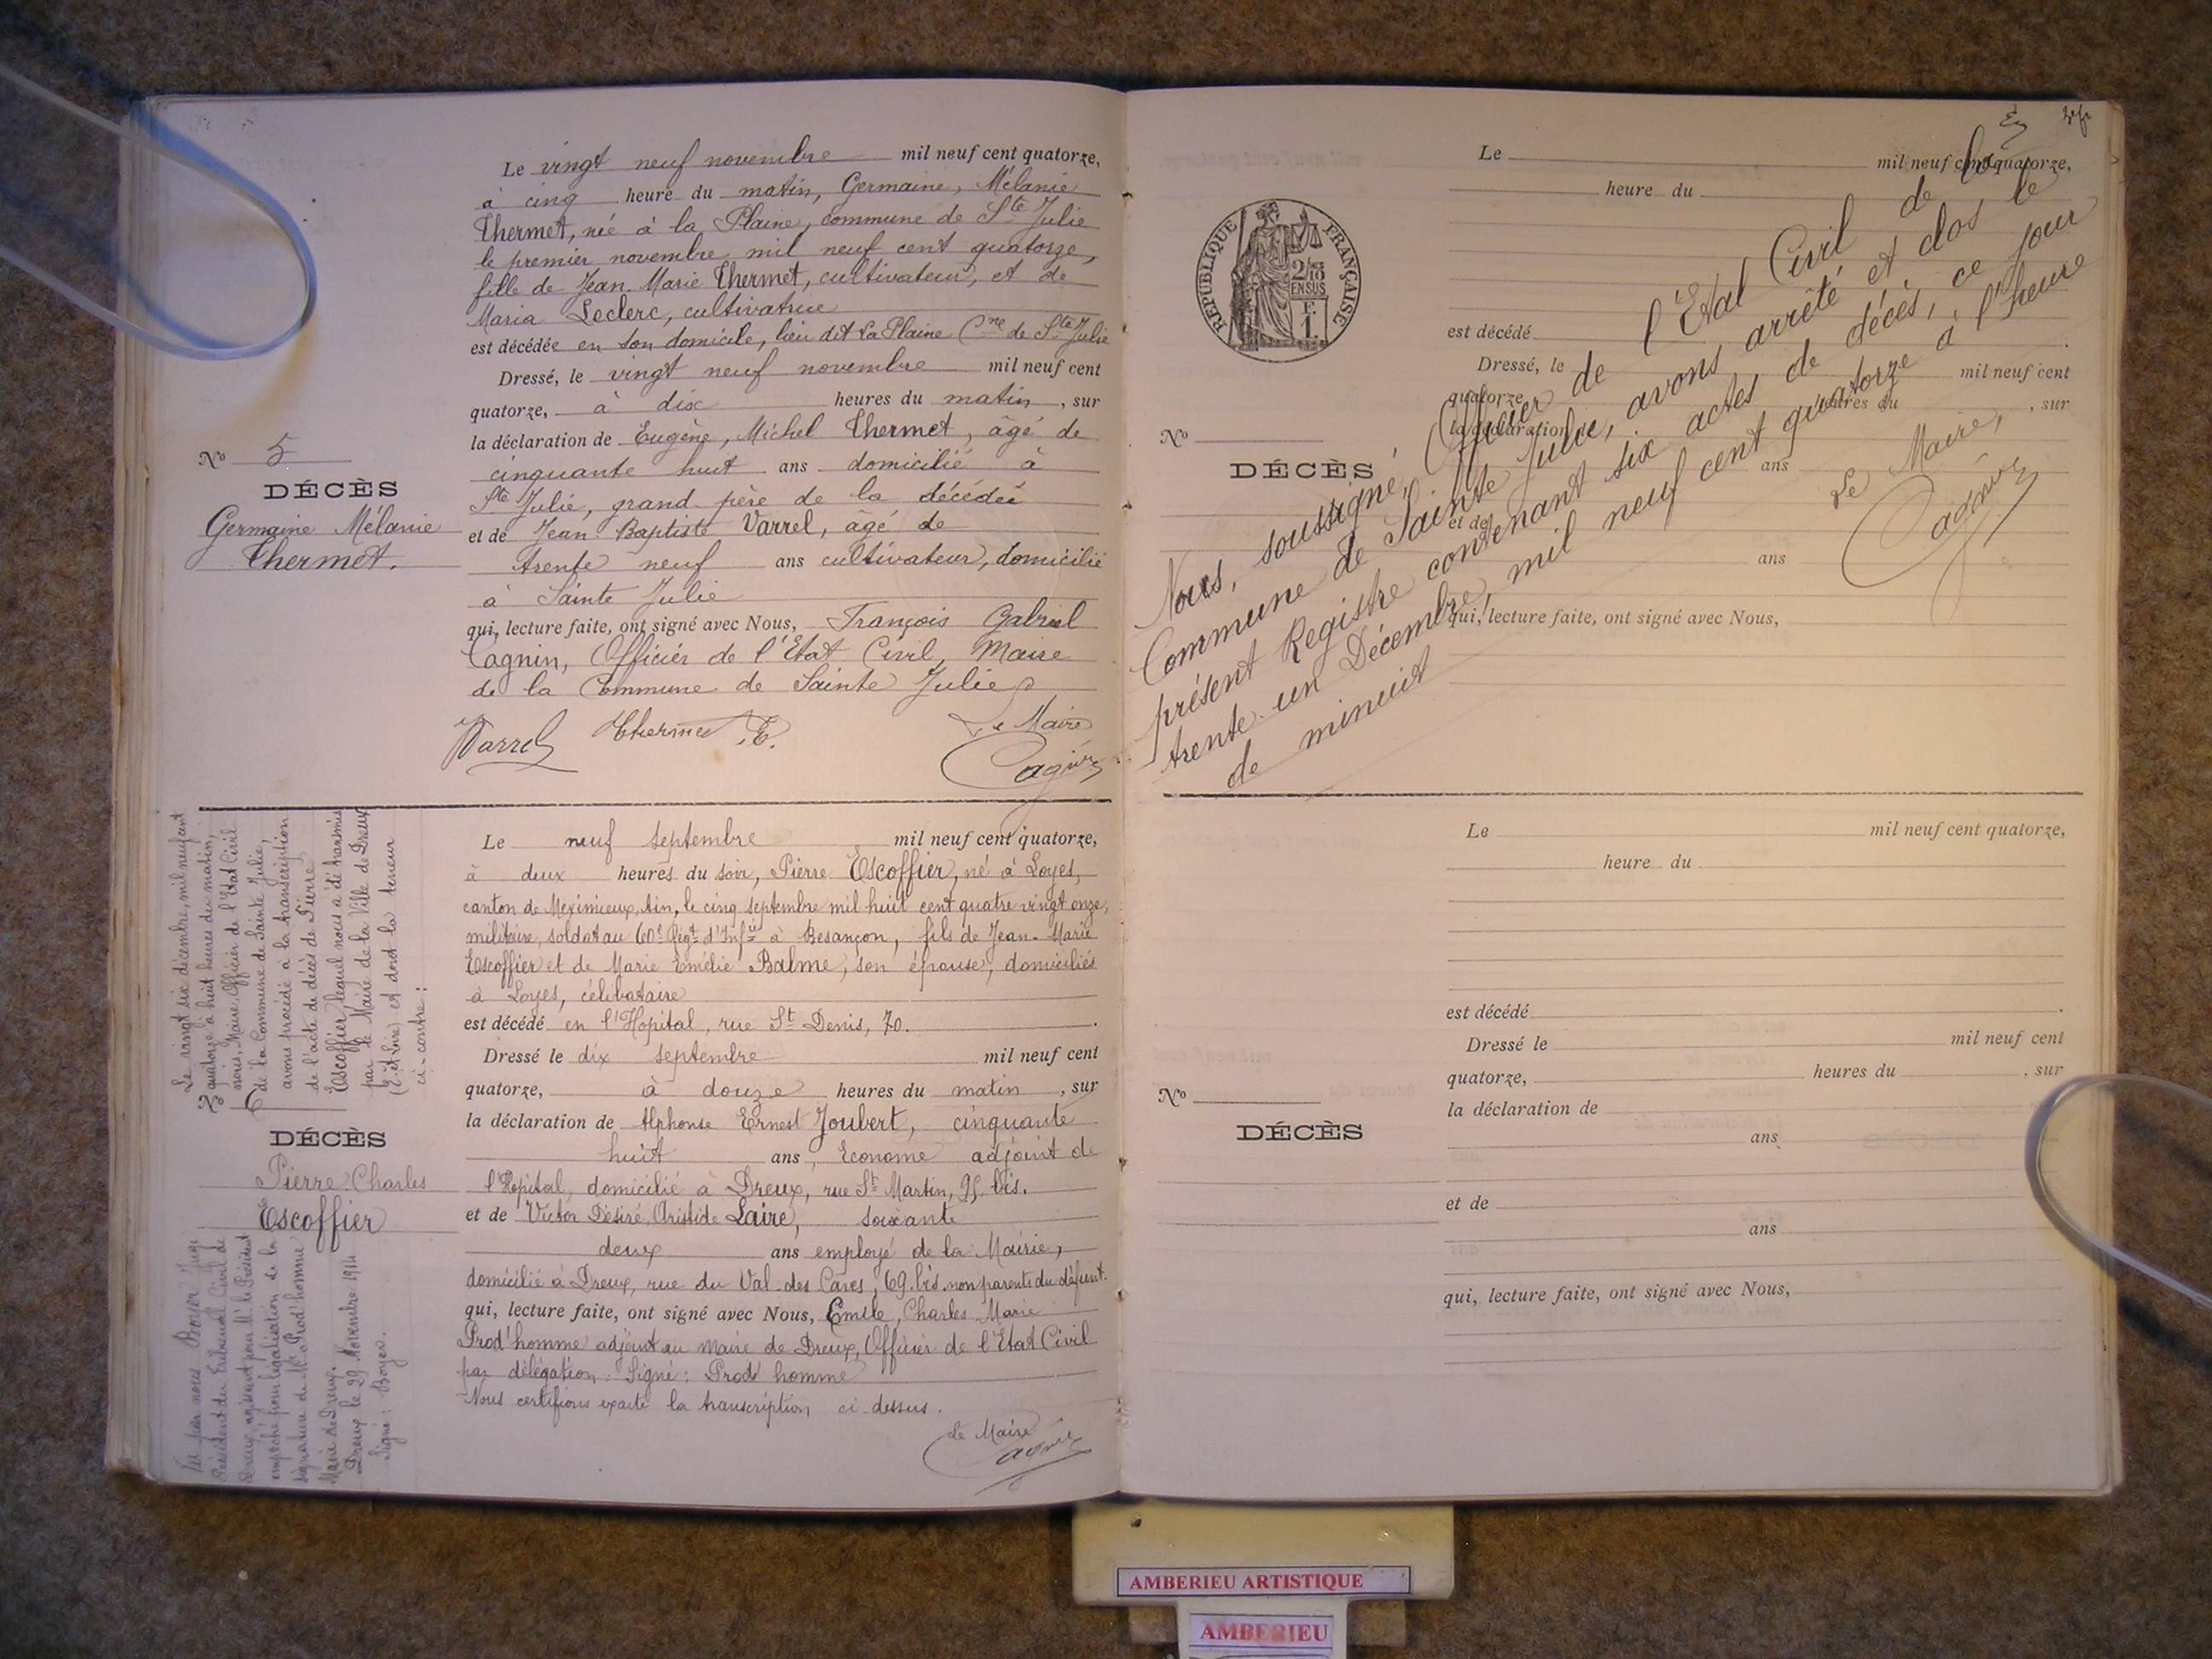 Le vingt neuf novembre mil neuf cent quatorze,
à cinq heure du matin, Germaine, Mélanie
Thermet, née à la Plaine, commune de Ste Julie
le premier novembre mil neuf cent quatorze,
fille de Jean Marie Thermet, cultivateur, et de
Maria Leclerc, cultivatrice
est décédée en son domicile, lieu dit La Plaine Cne de Ste Julie
Dressé, le vingt neuf novembre mil neuf cent
quatorze, à dix heures du matin, sur
la déclaration de Eugène, Michel Thermet, âgé de
cinquante huit ans domicilié à
Ste Julie, grand père de la décédée
et de Jean Baptiste Varrel, âgé de
trente neuf ans cultivateur, domicilié
à Sainte Julie
qui, lecture faite, ont signé avec Nous, François Gabriel
Cagnin, Officier de l'Etat Civil, Maire
de la Commune de Sainte Julie
Varrel Thermet E. Le Maire
Cagnin
No 5
DÉCÈS
Germaine Mélanie
Thermet.
Le vingt six décembre, mil neuf cent
quatorze à huit heures du matin,
nous, Maire, Officier de l'Etat Civil
de la Commune de Sainte Julie,
avons procédé à la transcription
de l'acte de décès de Pierre
Escoffier, lequel nous a été transmis
par le Maire de la Ville de Dreux
(E. et Loire) et dont la teneur
ci-contre :
No 6
DÉCÈS
Pierre Charles
Escoffier
Vu par nous Boyer Juge
Président du Tribunal Civil de
Dreux, agissant pour Mr le Président
empêché pour légalisation de la
signature de Mr Prod'homme
Mairie de Dreux.
Dreux le 29 Novembre 1914
Signé : Boyer.
Le neuf septembre mil neuf cent quatorze,
à deux heures du soir, Pierre Escoffier, né à Loyes,
canton de Meximieux, Ain, le cinq septembre mil huit cent quatre vingt onze,
militaire, soldat au 60e Régt d'Infie à Besançon, fils de Jean-Marie
Escoffier et de Marie Emélie Balme, son épouse, domiciliés
à Loyes, célibataire
est décédé en l'Hopital, rue St Denis, 70.
Dressé le dix septembre mil neuf cent
quatorze, à douze heures du matin, sur
la déclaration de Alphonse Ernest Joubert, cinquante
huit ans, Econome adjoint de
l'Hopital, domicilié à Dreux, rue St Martin, 95 bis.
et de Victor Désiré Aristide Laire, soixante
deux ans employé de la Mairie,
domicilié à Dreux, rue du Val des Caves, 69 bis non parents du défunt.
qui, lecture faite, ont signé avec Nous, Emile, Charles Marie
Prod'homme adjoint au maire de Dreux, Officier de l'Etat Civil
par délégation. Signé : Prod'homme
Nous certifions exacte la transcription ci-dessus.
Le Maire
Cagnin
RÉPUBLIQUE FRANÇAISE
Le mil neuf cent quatorze,
heure du
est décédé
Dressé, le mil neuf cent
quatorze, heures du , sur
la déclaration de
ans
et de
ans
qui, lecture faite, ont signé avec Nous,
No
DÉCÈS
Nous, soussigné, Officier de l'Etat Civil de la
Commune de Sainte Julie, avons arrêté et clos le
présent Registre contenant six actes de décès, ce jour
trente un Décembre, mil neuf cent quatorze à l'heure
de minuit
Le Maire,
Cagnin
Le mil neuf cent quatorze,
heure du
est décédé
Dressé le mil neuf cent
quatorze, heures du , sur
la déclaration de
ans
et de
ans
qui, lecture faite, ont signé avec Nous,
No
DÉCÈS
AMBERIEU ARTISTIQUE
AMBERIEU